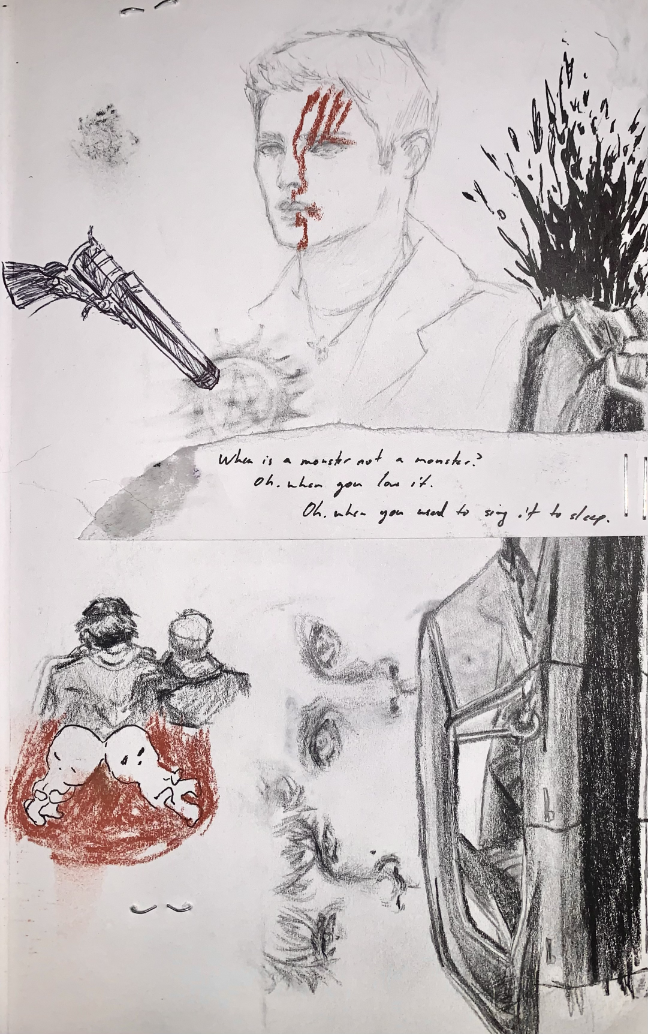 When is a monster not a monster?
Oh. when you love it.
Oh. when you used to sing it to sleep.